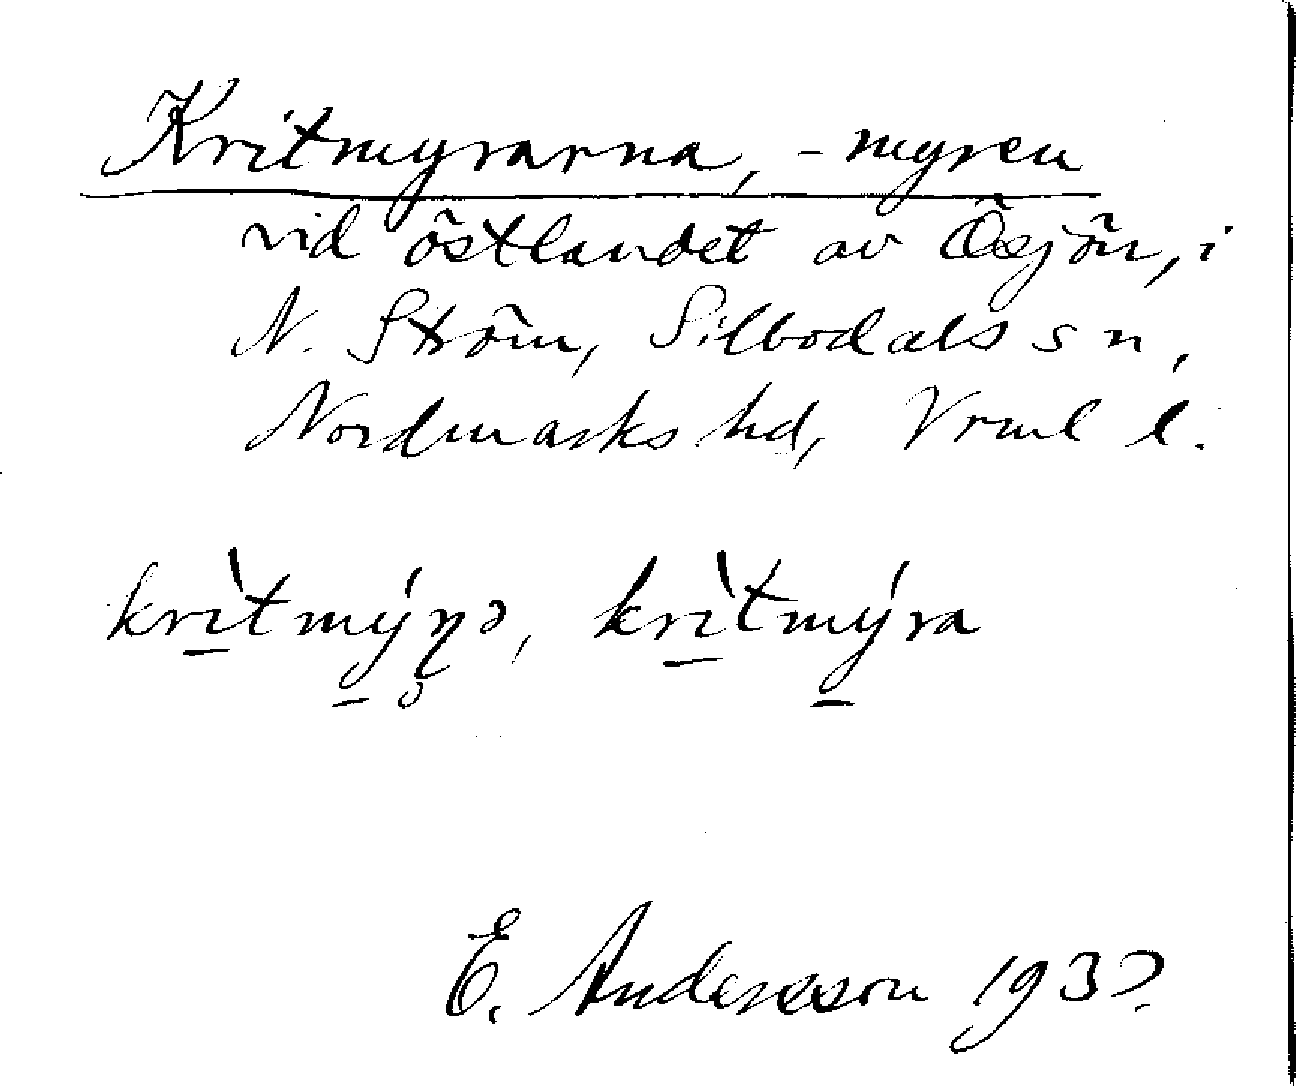 Kritmyrarna, -myren
vid östlandet av Ösjön, i
N. Ström, Silbodals sn,
Nordmarks hd, Vrml l.
krìtmýɳə, krìtmýra
E. Andersson 193?